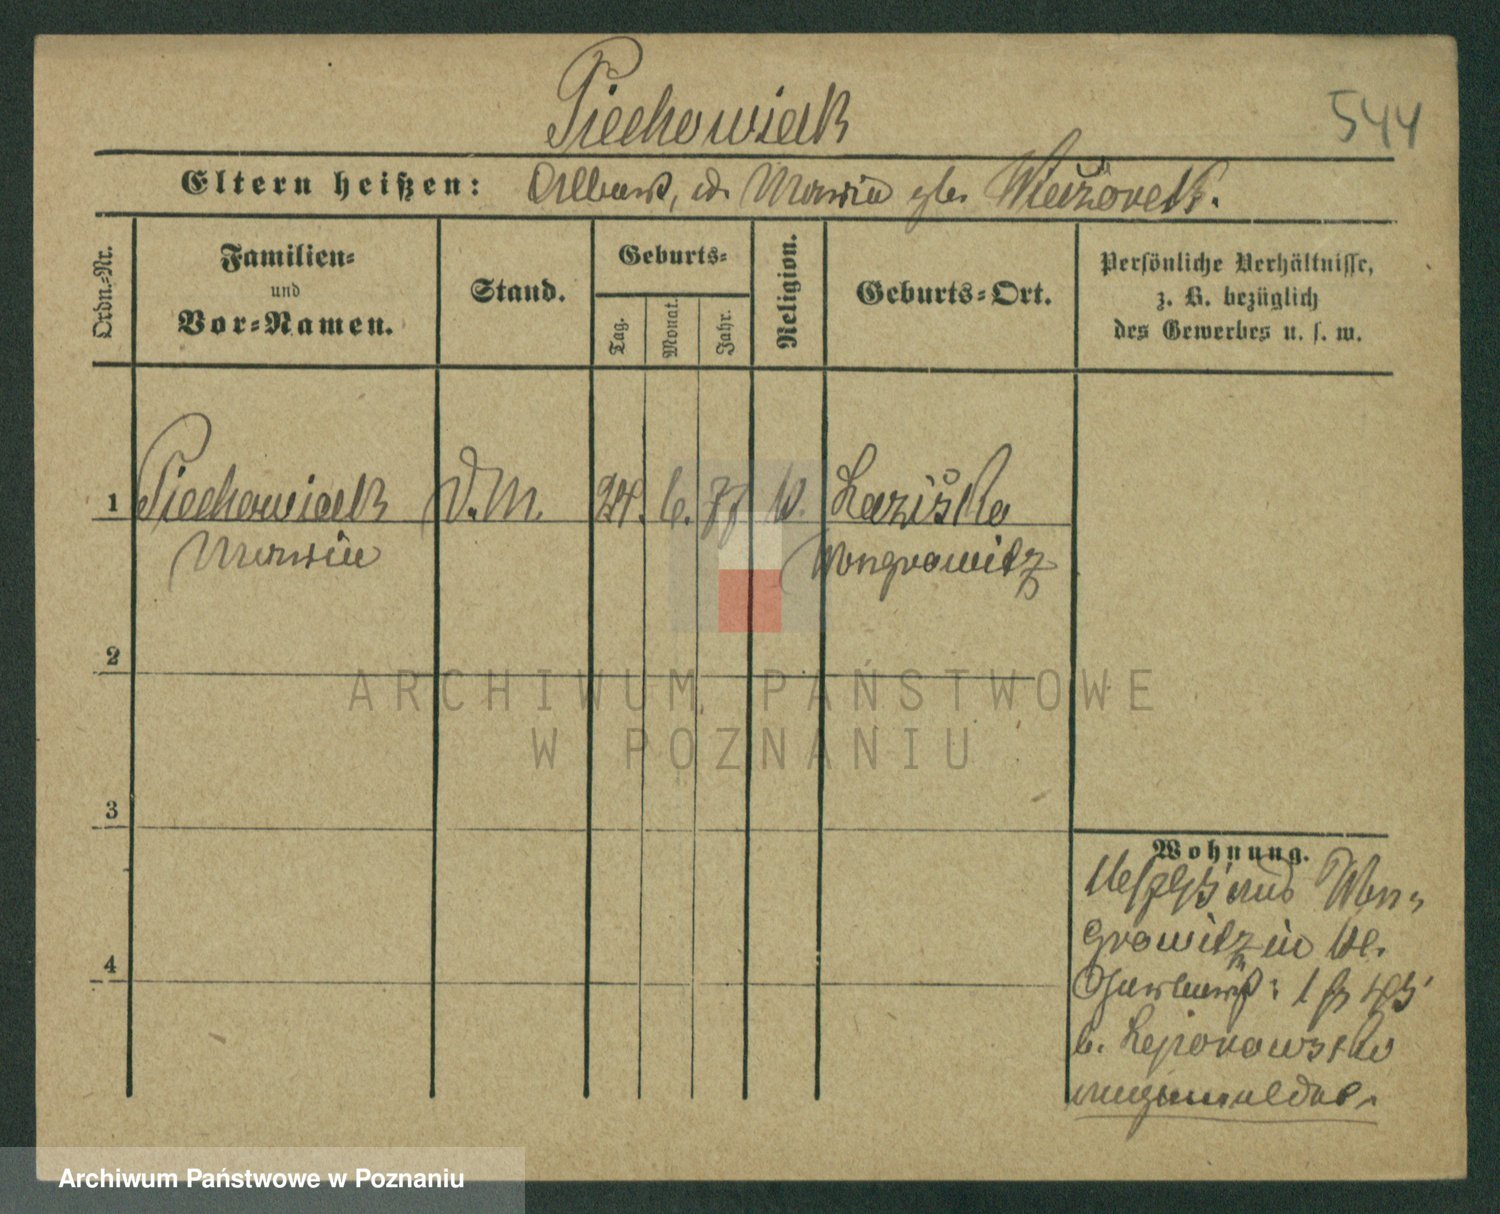 Piechowiak
544
Eltern heißen: Albert, u. Maria gb.
Ordn.-Nr.
Familien- und Vor-Namen.
Stand.
Geburts-
Tag.
Monat.
Jahr.
Religion.
Geburts-Ort.
Persönliche Verhältnisse,
z. B. bezüglich
des Gewerbes u. s. w.
1 Piechowiak D. M. 24. 6. 77 k. Laziska
Maria Wongrowitz
2
3
4
Wohnung.
aus Won-
growitz in
b.
angemeldet.
ARCHIWUM PAŃSTWOWE
W POZNANIU
Archiwum Państwowe w Poznaniu